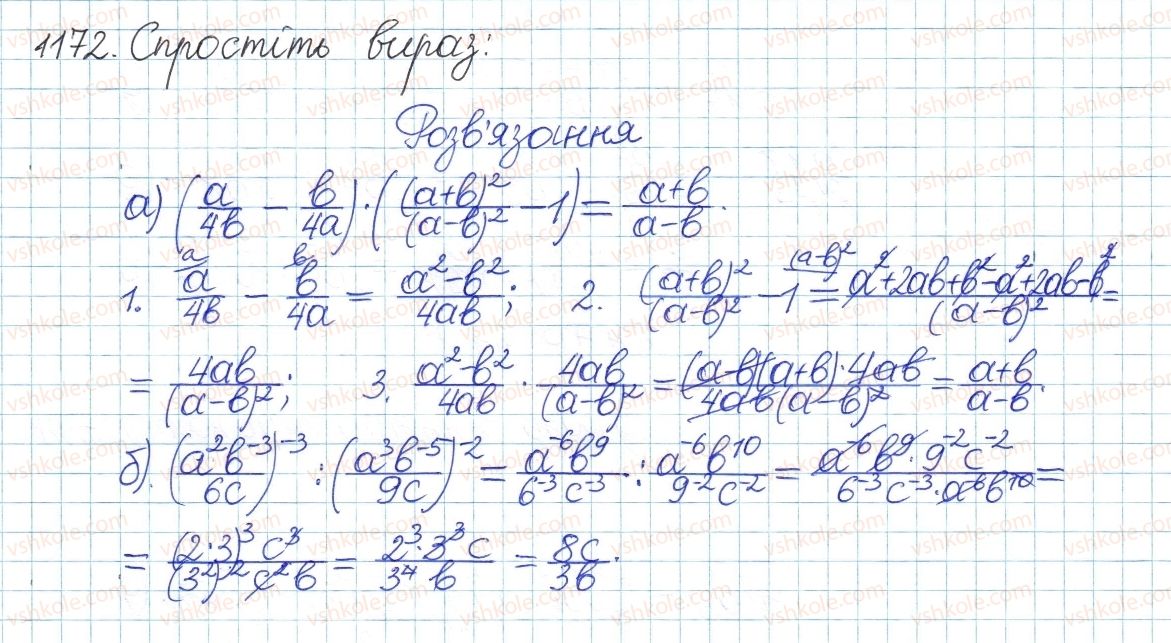 1172. Спростіть вираз:
Розв'язання
а) (a/4b - b/4a) · ((a+b)²/(a-b)² - 1) = (a+b)/(a-b).
1. a/4b - b/4a = (a²-b²)/4ab; 2. (a+b)²/(a-b)² - 1 = (a²+2ab+b²-a²+2ab-b²)/(a-b)² =
= 4ab/(a-b)²; 3. (a²-b²)/4ab · 4ab/(a-b)² = ((a-b)(a+b)·4ab)/(4ab(a-b)²) = (a+b)/(a-b).
б). (a²b⁻³/6c)⁻³ : (a³b⁻⁵/9c)⁻² = a⁻⁶b⁹/6⁻³c⁻³ : a⁻⁶b¹⁰/9⁻²c⁻² = (a⁻⁶b⁹·9⁻²c⁻²)/(6⁻³c⁻³·a⁻⁶b¹⁰) =
= ((2·3)³c³)/((3²)²c²b) = (2³·3³c)/(3⁴b) = 8c/3b.